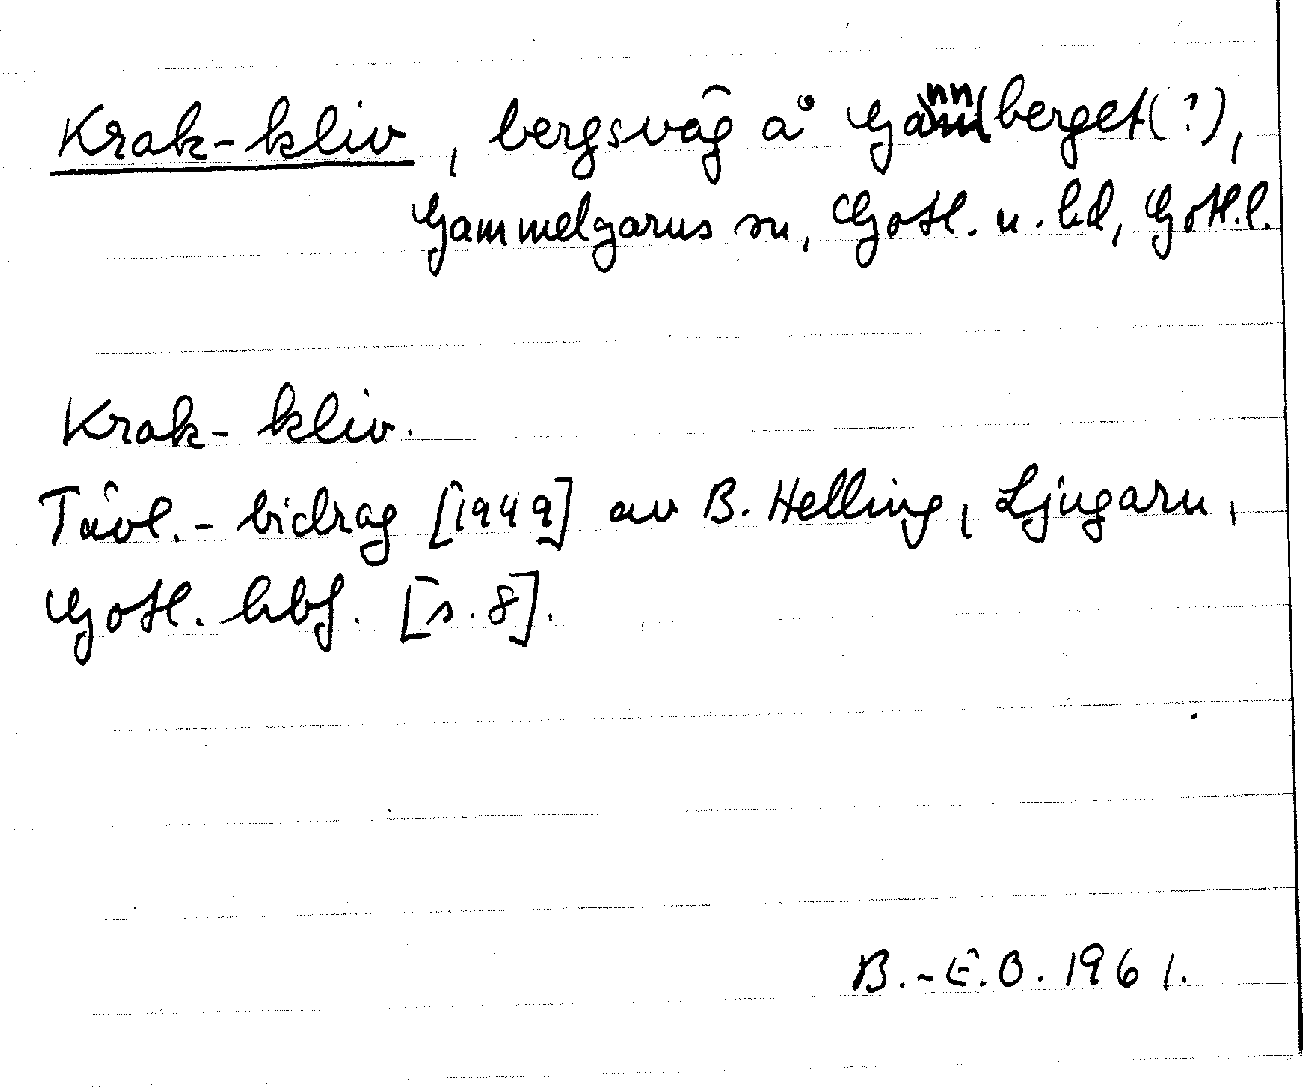 Krak-kliv, bergsväg å Gannberget(?),
Gammelgarns sn, Gotl. n. hd, Gotl. l.
Krak-kliv.
Tävl.-bidrag [1949] av B. Helling, Ljugarn,
Gotl. hbf. [s. 8].
B.-E.O. 1961.